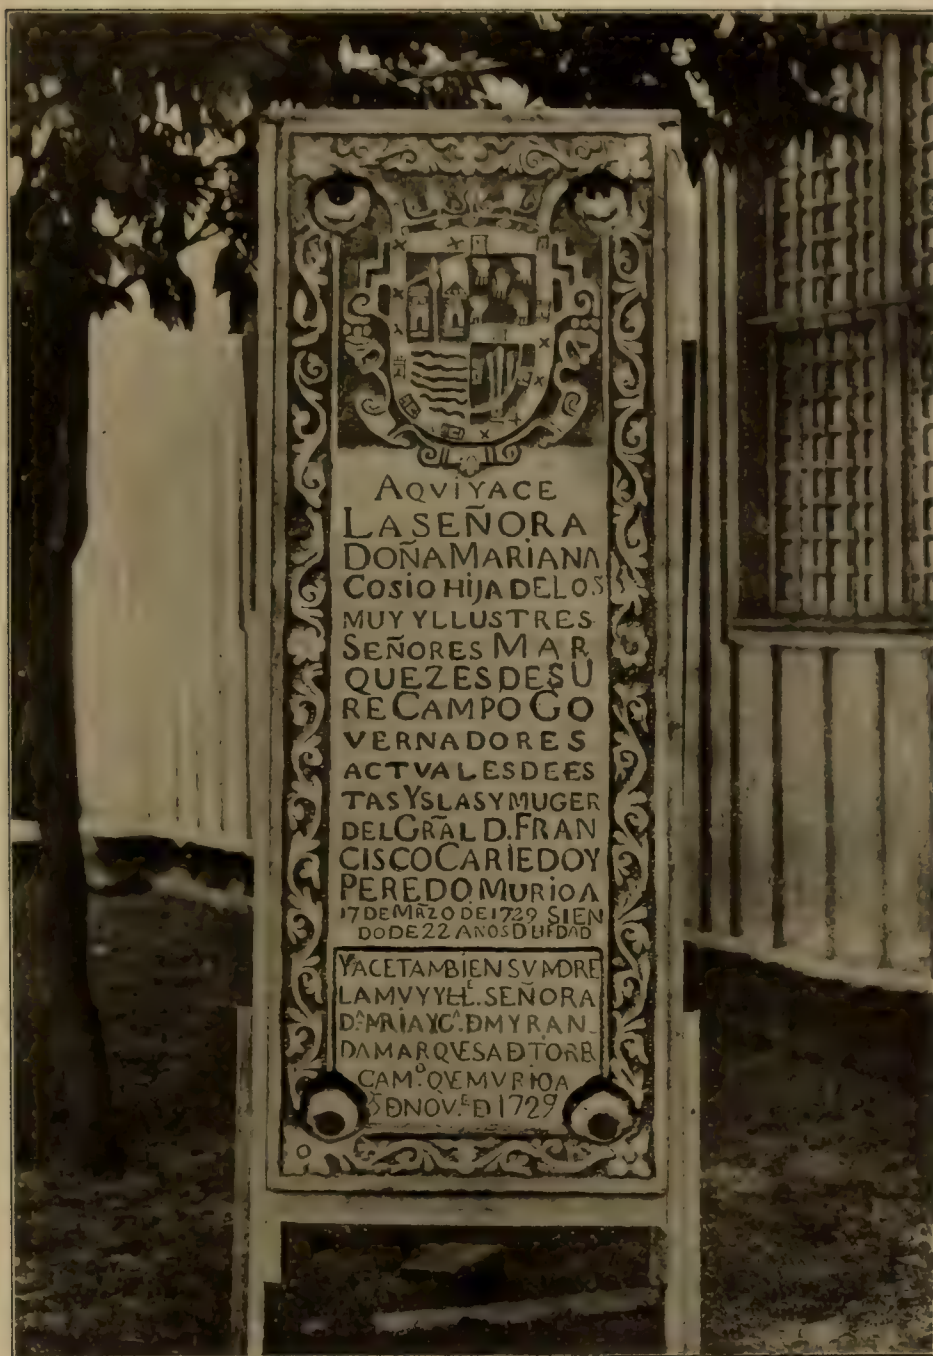 AQVI YACE
LA SEÑORA
DOÑA MARIANA
COSIO HIJA DE LOS
MUY YLLUSTRES
SEÑORES MAR
QUEZES DE SU
RE CAMPO GO
VERNADORES
ACTVALES DE ES
TAS YSLAS Y MUGER
DEL GRAL D. FRAN
CISCO CARIEDO Y
PEREDO MURIO A
17 DE MRZO DE 1729 SIEN
DO DE 22 AÑOS D UEDAD
YACE TAMBIEN SV MDRE
LA MVY YLLE. SEÑORA
Dª MRIA YGª. D MYRAN
DA MARQVESA D TORR
CAMº. QVE MVRIO A
D NOV.E D 1729